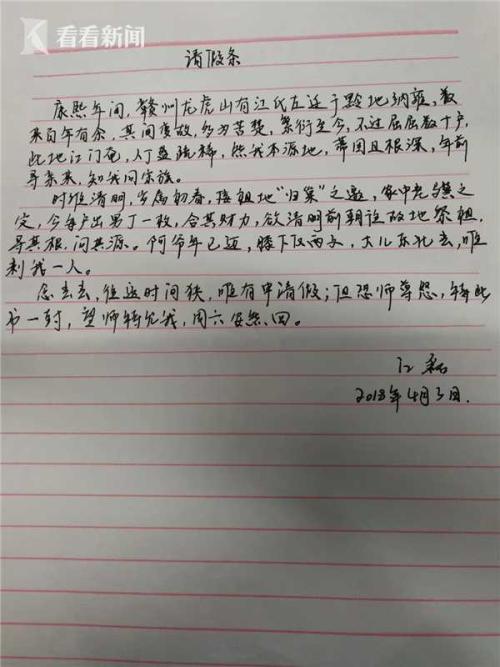 看看新闻
请假条
康熙年间，赣州龙虎山有江氏左迁于黔地纳雍，数
来百年有余，其间变故，多为苦楚，繁衍至今，不过屈屈数十户，
此地江门奄，人丁盈疏稀，然我本源地，蒂固且根深，年前
寻亲来，知我同宗族。
时维清明，岁属初春，接祖地“归宗”之邀，家中老
定，今每户出男丁一枚，合其财力，欲清明前朝边故地祭祖，
寻其根，问其源。何爷年已迈，膝下仅两子，大儿东北去，唯
剩我一人。
念去去，往返时间狭，唯有申请假；但恐师尊怒，特此
书一封，望师特允我，周六安然回。
江磊
2018年4月3日.